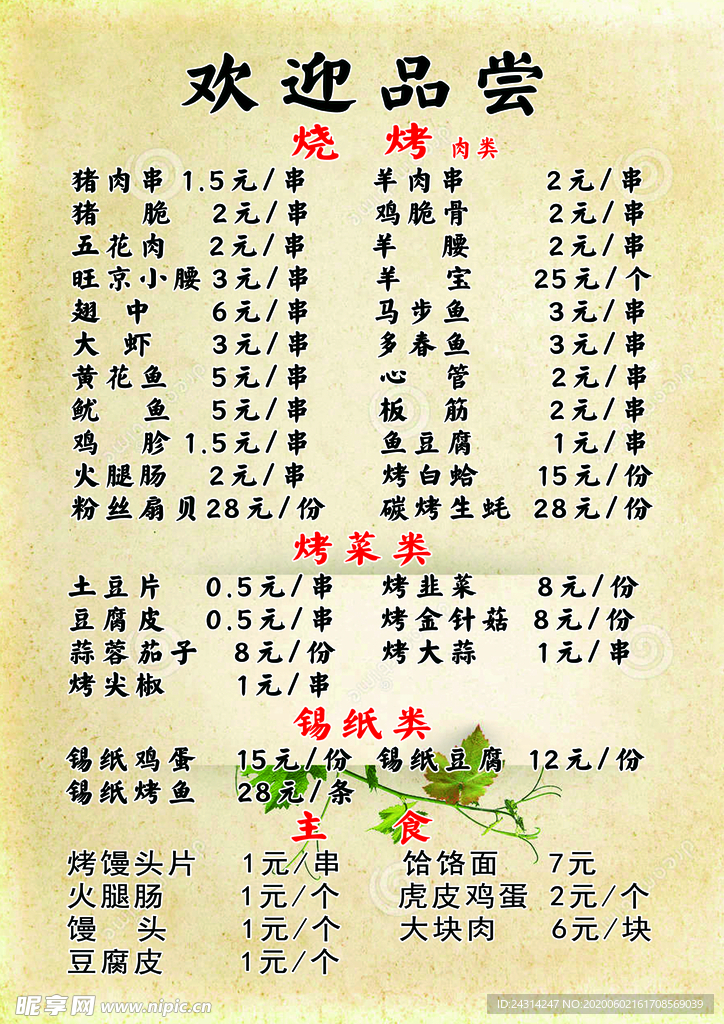 欢迎品尝
烧 烤 肉类
猪肉串 1.5元/串 羊肉串 2元/串
猪 脆 2元/串 鸡脆骨 2元/串
五花肉 2元/串 羊 腰 2元/串
旺京小腰 3元/串 羊 宝 25元/个
翅 中 6元/串 马步鱼 3元/串
大 虾 3元/串 多春鱼 3元/串
黄花鱼 5元/串 心 管 2元/串
鱿 鱼 5元/串 板 筋 2元/串
鸡 胗 1.5元/串 鱼豆腐 1元/串
火腿肠 2元/串 烤白蛤 15元/份
粉丝扇贝 28元/份 碳烤生蚝 28元/份
烤菜类
土豆片 0.5元/串 烤韭菜 8元/份
豆腐皮 0.5元/串 烤金针菇 8元/份
蒜蓉茄子 8元/份 烤大蒜 1元/串
烤尖椒 1元/串
锡纸类
锡纸鸡蛋 15元/份 锡纸豆腐 12元/份
锡纸烤鱼 28元/条
主 食
烤馒头片 1元/串 饸饹面 7元
火腿肠 1元/个 虎皮鸡蛋 2元/个
馒 头 1元/个 大块肉 6元/块
豆腐皮 1元/个
昵享网 www.nipic.cn
ID:24314247 NO:20200602161708569039